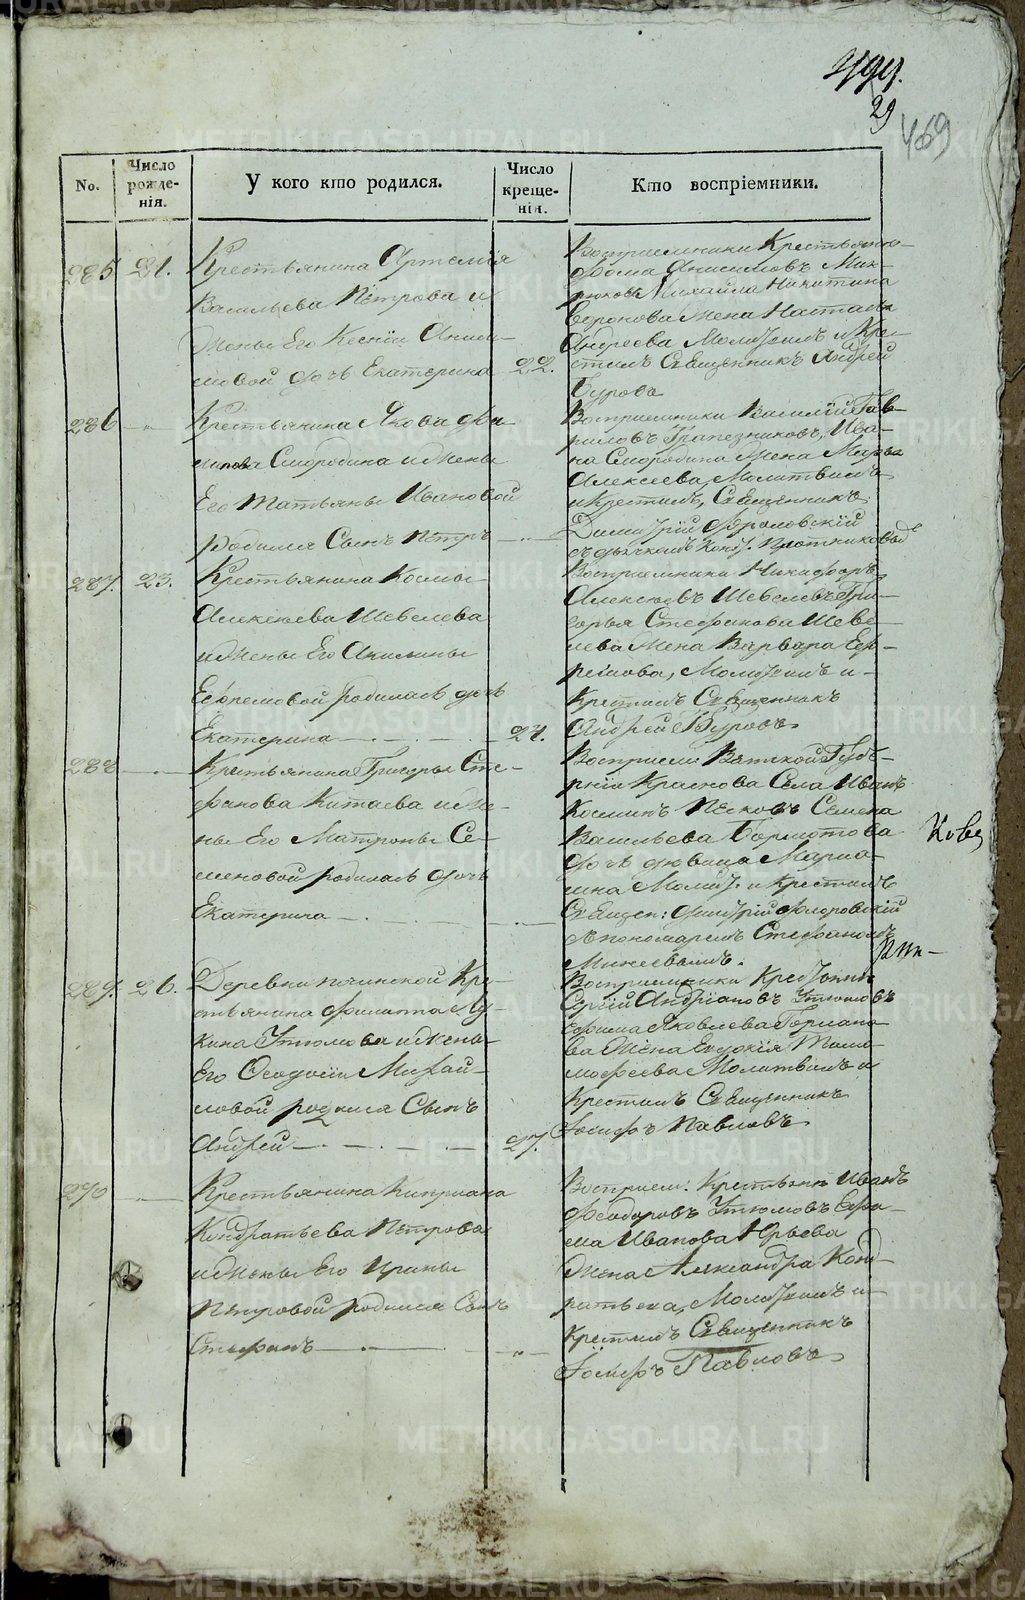 29
469
No.
Число рожденія.
У кого кто родился.
Число крещенія.
Кто воспріемники.
285
21.
Крестьянина Артемія
Васильева Петрова и
жены Его Ксеніи Аники
мовой дочь Екатерина
22.
Восприемники Крестьяни
Фома Анисимовъ
Михайла Никитина
жена Наталья
Андреева Молитвилъ и Кре-
стилъ Священникъ Андрей
Буровъ
286
"
Крестьянина Якова Фи
липова Смородина и жены
Его Татьяны Ивановой
родился Сынъ Петръ
Восприемники Василій Гав-
риловъ Трапезниковъ, Ива-
на Смородина жена Марья
Алексеева, Молитвилъ
и Крестилъ, Священникъ
Димитрій Фроловскій
съ дьячкомъ
287.
23.
Крестьянина Космы
Алексеева Шевелева
и жены Его Акилины
Ефремовой родилась дочь
Екатерина
24.
Восприемники Никифоръ
Алексеевъ Шевелевъ Гри-
горья Стефанова Шеве-
лева жена Варвара Еф-
ремова, Молитвилъ и
Крестилъ Священникъ
Андрей Буровъ
288
Крестьянина Григорья Сте-
фанова Китаева и же-
ны Его Матроны Се-
меновой родилась дочь
Екатерина
Восприем: Вятской Губер-
ніи Краснова Села Иванъ
Косминъ Песковъ Семена
Васильева Бормотова
дочь девица Марья-
мна Молит. и Крестилъ
Священ: Димитрій Флоровскій
съ пономаремъ Стефаномъ
Михеевымъ.
289.
26.
Деревни починской Кре-
стьянина Филата Лу-
кина Утюмова и жены
Его Феодосіи Михай-
ловой родился Сынъ
Андрей
27.
Восприемники Крестьянин
Сергій Андріановъ Утюмовъ
Ефима Яковлева
жена Евдокія Тимо-
феева Молитвилъ и
Крестилъ Священникъ
Іосифъ Павловъ
290
"
Крестьянина Киприана
Кондратьева Петрова
и жены Его Ирины
Петровой родился Сынъ
Стефанъ
"
Восприем: Крестьянин Иванъ
Феодоровъ Утюмовъ Ефи-
ма Иванова Юрьева
жена Александра Конд-
ратьева, Молитвилъ и
Крестилъ Священникъ
Іосифъ Павловъ
METRIKI.GASO-URAL.RU